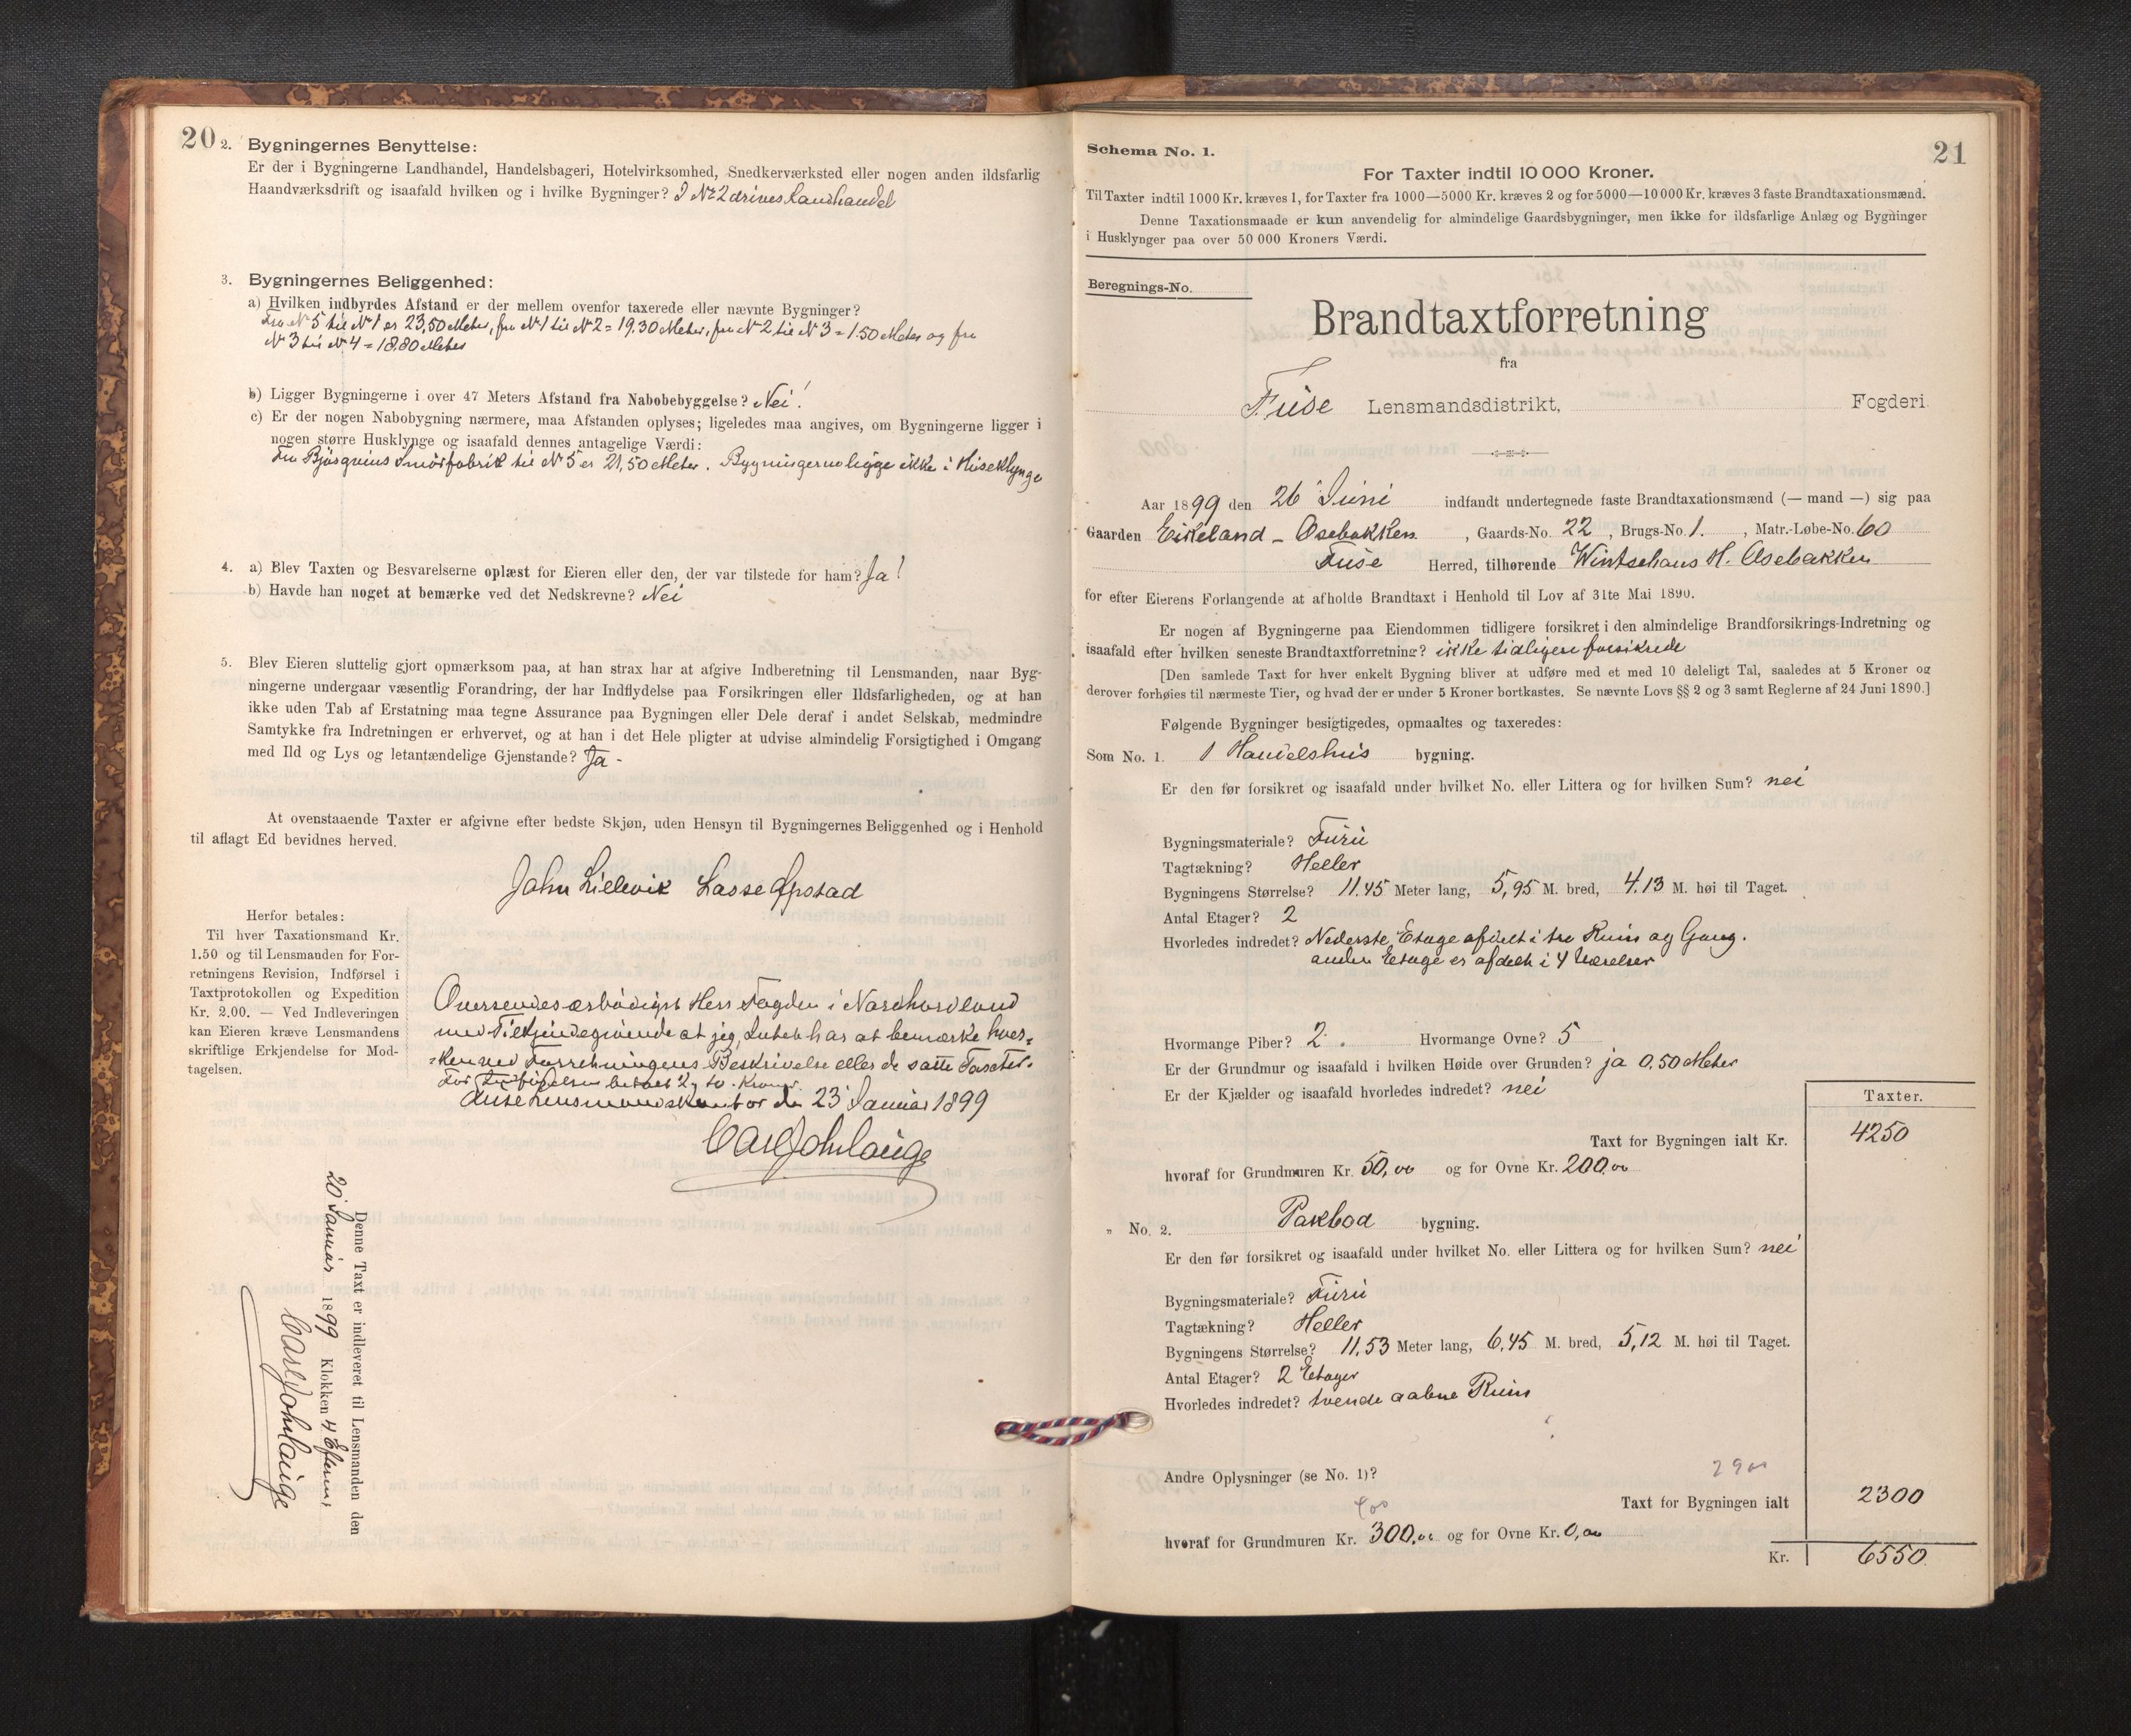 20
2. Bygningernes Benyttelse:
Er der i Bygningerne Landhandel, Handelsbageri, Hotelvirksomhed, Snedkerværksted eller nogen anden ildsfarlig
Haandværksdrift og isaafald hvilken og i hvilke Bygninger? I No 2 drives Landhandel
3. Bygningernes Beliggenhed:
a) Hvilken indbyrdes Afstand er der mellem ovenfor taxerede eller nævnte Bygninger?
Fra No 5 til No 1 er 23,50 Meter, fra No 1 til No 2 = 19.30 Meter, fra No 2 til No 3 = 1.50 Meter og fra
No 3 til No 4 = 18.80 Meter
b) Ligger Bygningerne i over 47 Meters Afstand fra Nabobebyggelse? Nei!
c) Er der nogen Nabobygning nærmere, maa Afstanden oplyses; ligeledes maa angives, om Bygningerne ligger i
nogen større Husklynge og isaafald dennes antagelige Værdi:
Fra Smørfabrik til No 5 er 21,50 Meter. Bygningerne ligge ikke i Huseklynge
4. a) Blev Taxten og Besvarelserne oplæst for Eieren eller den, der var tilstede for ham? Ja!
b) Havde han noget at bemærke ved det Nedskrevne? Nei
5. Blev Eieren sluttelig gjort opmærksom paa, at han strax har at afgive Indberetning til Lensmanden, naar Byg-
ningerne undergaar væsentlig Forandring, der har Indflydelse paa Forsikringen eller Ildsfarligheden, og at han
ikke uden Tab af Erstatning maa tegne Assurance paa Bygningen eller Dele deraf i andet Selskab, medmindre
Samtykke fra Indretningen er erhvervet, og at han i det Hele pligter at udvise almindelig Forsigtighed i Omgang
med Ild og Lys og letantændelige Gjenstande? Ja -
At ovenstaaende Taxter er afgivne efter bedste Skjøn, uden Hensyn til Bygningernes Beliggenhed og i Henhold
til aflagt Ed bevidnes herved.
John Lillevik Lasse Opstad
Herfor betales:
Til hver Taxationsmand Kr.
1.50 og til Lensmanden for For-
retningens Revision, Indførsel i
Taxtprotokollen og Expedition
Kr. 2.00. — Ved Indleveringen
kan Eieren kræve Lensmandens
skriftlige Erkjendelse for Mod-
tagelsen.
Oversendes ærbødigst Herr Fogden i Nordhordland
med Tilkjendegivende at jeg, Intet har at bemærke hver-
ken ved Forretningens Beskrivelse eller de satte Taxter.
For betalt 2 to. Kroner.
Fuse Lensmandskontor den 23 Januar 1899
Carl Joh Lauge
Denne Taxt er indleveret til Lensmanden den
20 Januar 1899 Klokken 4 Efterm:
Carl Joh Lauge
21
Schema No. 1.
For Taxter indtil 10 000 Kroner.
Til Taxter indtil 1000 Kr. kræves 1, for Taxter fra 1000—5000 Kr. kræves 2 og for 5000—10 000 Kr. kræves 3 faste Brandtaxationsmænd.
Denne Taxationsmaade er kun anvendelig for almindelige Gaardsbygninger, men ikke for ildsfarlige Anlæg og Bygninger
i Husklynger paa over 50 000 Kroners Værdi.
Beregnings-No.
Brandtaxtforretning
fra
Fuse Lensmandsdistrikt, Fogderi
Aar 1899 den 26 Juni indfandt undertegnede faste Brandtaxationsmænd (— mand —) sig paa
Gaarden Eikeland - Osebakken, Gaards-No. 22, Brugs-No. 1., Matr.-Løbe-No. 60
Fuse Herred, tilhørende Wintsehans H. Osebakken
for efter Eierens Forlangende at afholde Brandtaxt i Henhold til Lov af 31te Mai 1890.
Er nogen af Bygningerne paa Eiendommen tidligere forsikret i den almindelige Brandforsikrings-Indretning og
isaafald efter hvilken seneste Brandtaxtforretning? ikke tidligere forsikrede
[Den samlede Taxt for hver enkelt Bygning bliver at udføre med et med 10 deleligt Tal, saaledes at 5 Kroner og
derover forhøies til nærmeste Tier, og hvad der er under 5 Kroner bortkastes. Se nævnte Lovs §§ 2 og 3 samt Reglerne af 24 Juni 1890.]
Følgende Bygninger besigtigedes, opmaaltes og taxeredes:
Som No. 1. 1 Handelshus bygning.
Er den før forsikret og isaafald under hvilket No. eller Littera og for hvilken Sum? nei
Bygningsmateriale? Furu
Tagtækning? Heller
Bygningens Størrelse? 11.45 Meter lang, 5,95 M. bred, 4.13 M. høi til Taget.
Antal Etager? 2
Hvorledes indredet? Nederste Etage afdelt i tre Rum og Gang.
anden Etage er afdelt i 4 Værelser
Hvormange Piber? 2. Hvormange Ovne? 5
Er der Grundmur og isaafald i hvilken Høide over Grunden? ja 0,50 Meter
Er der Kjælder og isaafald hvorledes indredet? nei
Taxter.
Taxt for Bygningen ialt Kr. 4250
hvoraf for Grundmuren Kr. 50,00 og for Ovne Kr. 200,00
„ No. 2. Pakbod bygning.
Er den før forsikret og isaafald under hvilket No. eller Littera og for hvilken Sum? nei
Bygningsmateriale? Furu
Tagtækning? Heller
Bygningens Størrelse? 11,53 Meter lang, 6,45 M. bred, 5,12 M. høi til Taget.
Antal Etager? 2 Etager
Hvorledes indredet? tvende aabne Rum
Andre Oplysninger (se No. 1)? 2900
400
Taxt for Bygningen ialt 2300
hvoraf for Grundmuren Kr. 300,00 og for Ovne Kr. 0,00
Kr. 6550